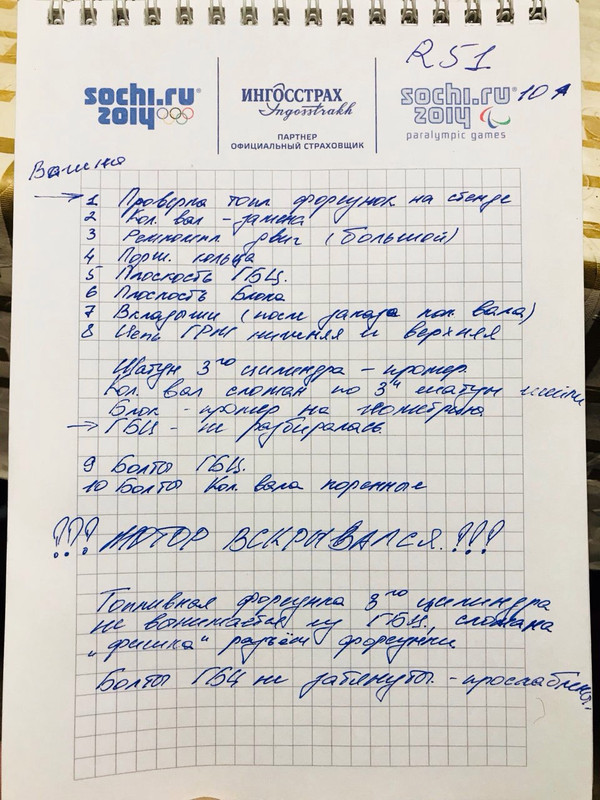 R51
sochi.ru
2014
ИНГОССТРАХ
Ingosstrakh
ПАРТНЕР
ОФИЦИАЛЬНЫЙ СТРАХОВЩИК
sochi.ru
2014
paralympic games
10 А
1 Проверка топл форсунок на стенде
2 Кол. вал - замена
3 Ремкомпл двиг (большой)
4 Порш. кольца
5 Плоскость ГБЦ.
6 Плоскость Блока
7 Вкладыши (после заказа кол. вала)
8 Цепь ГРМ нижняя и верхняя
Шатун 3го цилиндра - промер.
Кол. вал сломан по 3й шатун шейки
Блок - промер на геометрию
ГБЦ - не разбиралась
9 Болты ГБЦ.
10 Болты Кол. вала коренные
!!! МОТОР ВСКРЫВАЛСЯ. !!!
Топливная форсунка 3го цилиндра
не вынимается из ГБЦ, сломана
„фишка" разъём форсунки
Болты ГБЦ не затянуты. - прослаблены.